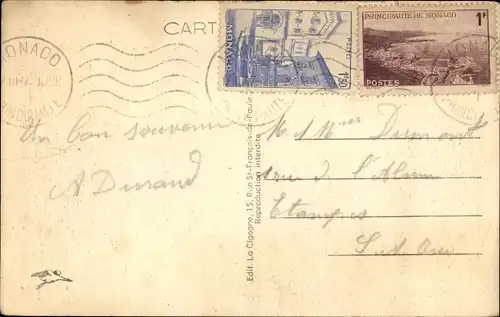 CART
MONACO
1F50
PRINCIPAUTÉ DE MONACO
1F
POSTES
MONACO
Un bon souvenir
A Durand
Edit. La Cigogne, 15, Rue St-François-de-Paule
Reproduction interdite
M et Mme Dumont
rue de l'
Etampes
S. et Oise